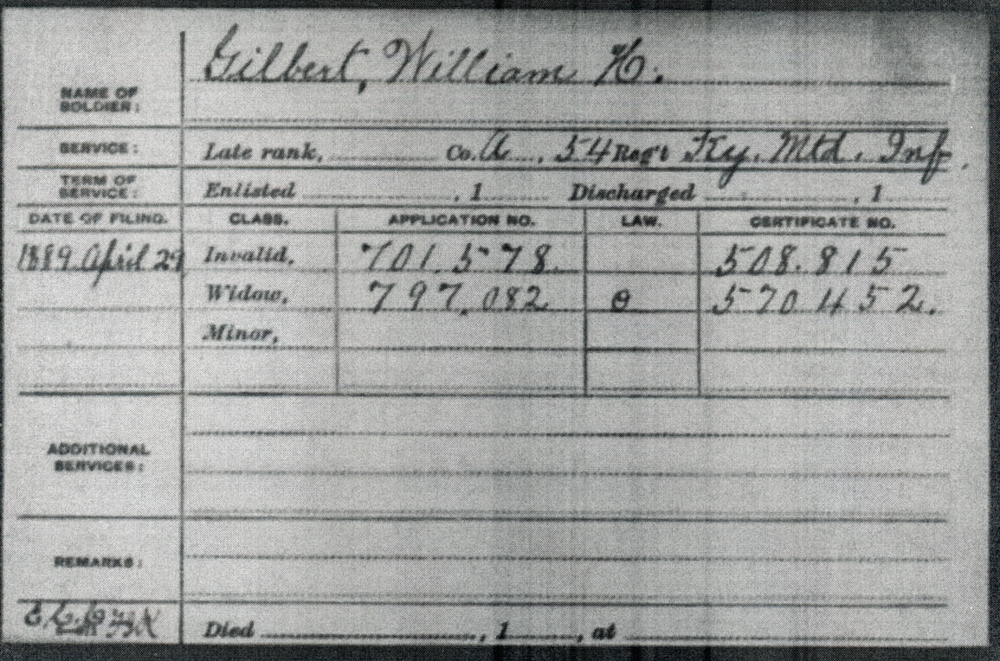 NAME OF SOLDIER: Gilbert, William H.
SERVICE: Late rank, Co. A, 54 Reg't Ky. Mtd. Inf.
TERM OF SERVICE: Enlisted , 1 Discharged , 1
DATE OF FILING. CLASS. APPLICATION NO. LAW. CERTIFICATE NO.
1889 April 29 Invalid, 701.578. 508.815
Widow, 797.082 θ 570452.
Minor,
ADDITIONAL SERVICES:
REMARKS:
Died , 1 , at